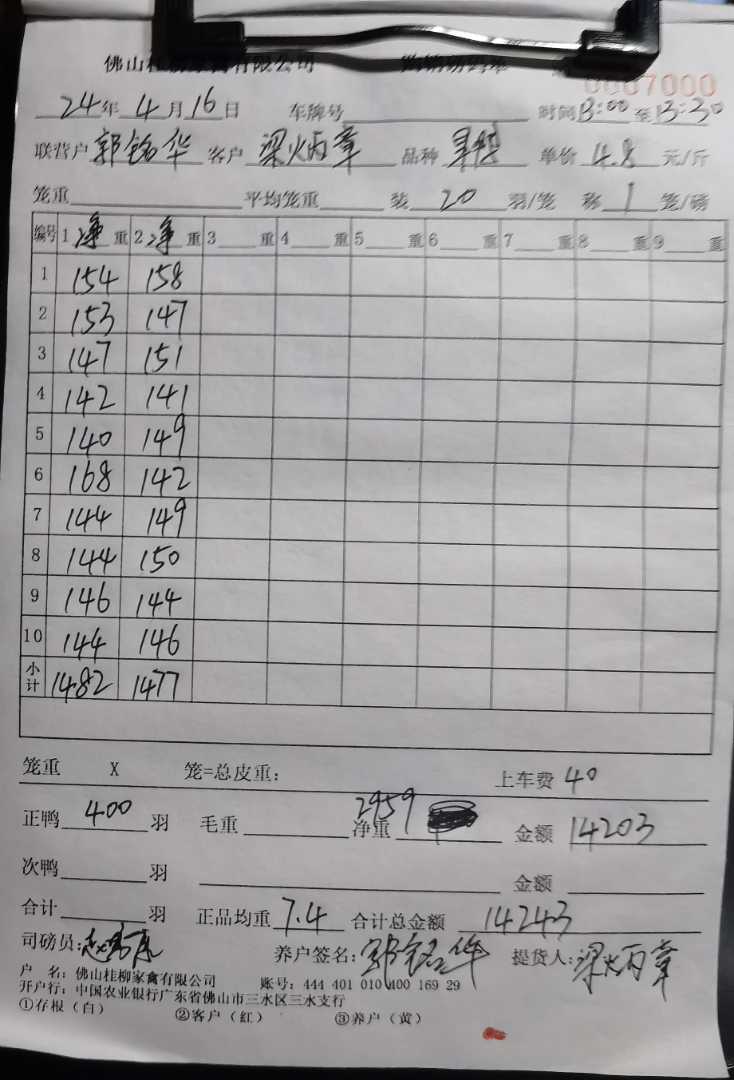 佛山桂柳家禽有限公司 购销过磅单
0007000
24年4月16日 车牌号 时间13:00至13:30
联营户 郭铭华 客户 梁火丙章 品种 单价 4.8 元/斤
笼重 平均笼重 装 20 羽/笼 称 1 笼/磅
编号 1 净 重 2 净 重 3 重 4 重 5 重 6 重 7 重 8 重 9 重
1 154 158
2 153 147
3 147 151
4 142 141
5 140 149
6 168 142
7 144 149
8 144 150
9 146 144
10 144 146
小计 1482 1477
笼重 X 笼=总皮重: 上车费 40
正鸭 400 羽 毛重 净重 2959 金额 14203
次鸭 羽 金额
合计 羽 正品均重 7.4 合计总金额 14243
司磅员: 养户签名: 郭铭华 提货人: 梁火丙章
户 名: 佛山桂柳家禽有限公司 账号: 444 401 010 400 169 29
开户行: 中国农业银行广东省佛山市三水区三水支行
①存根(白) ②客户(红) ③养户(黄)